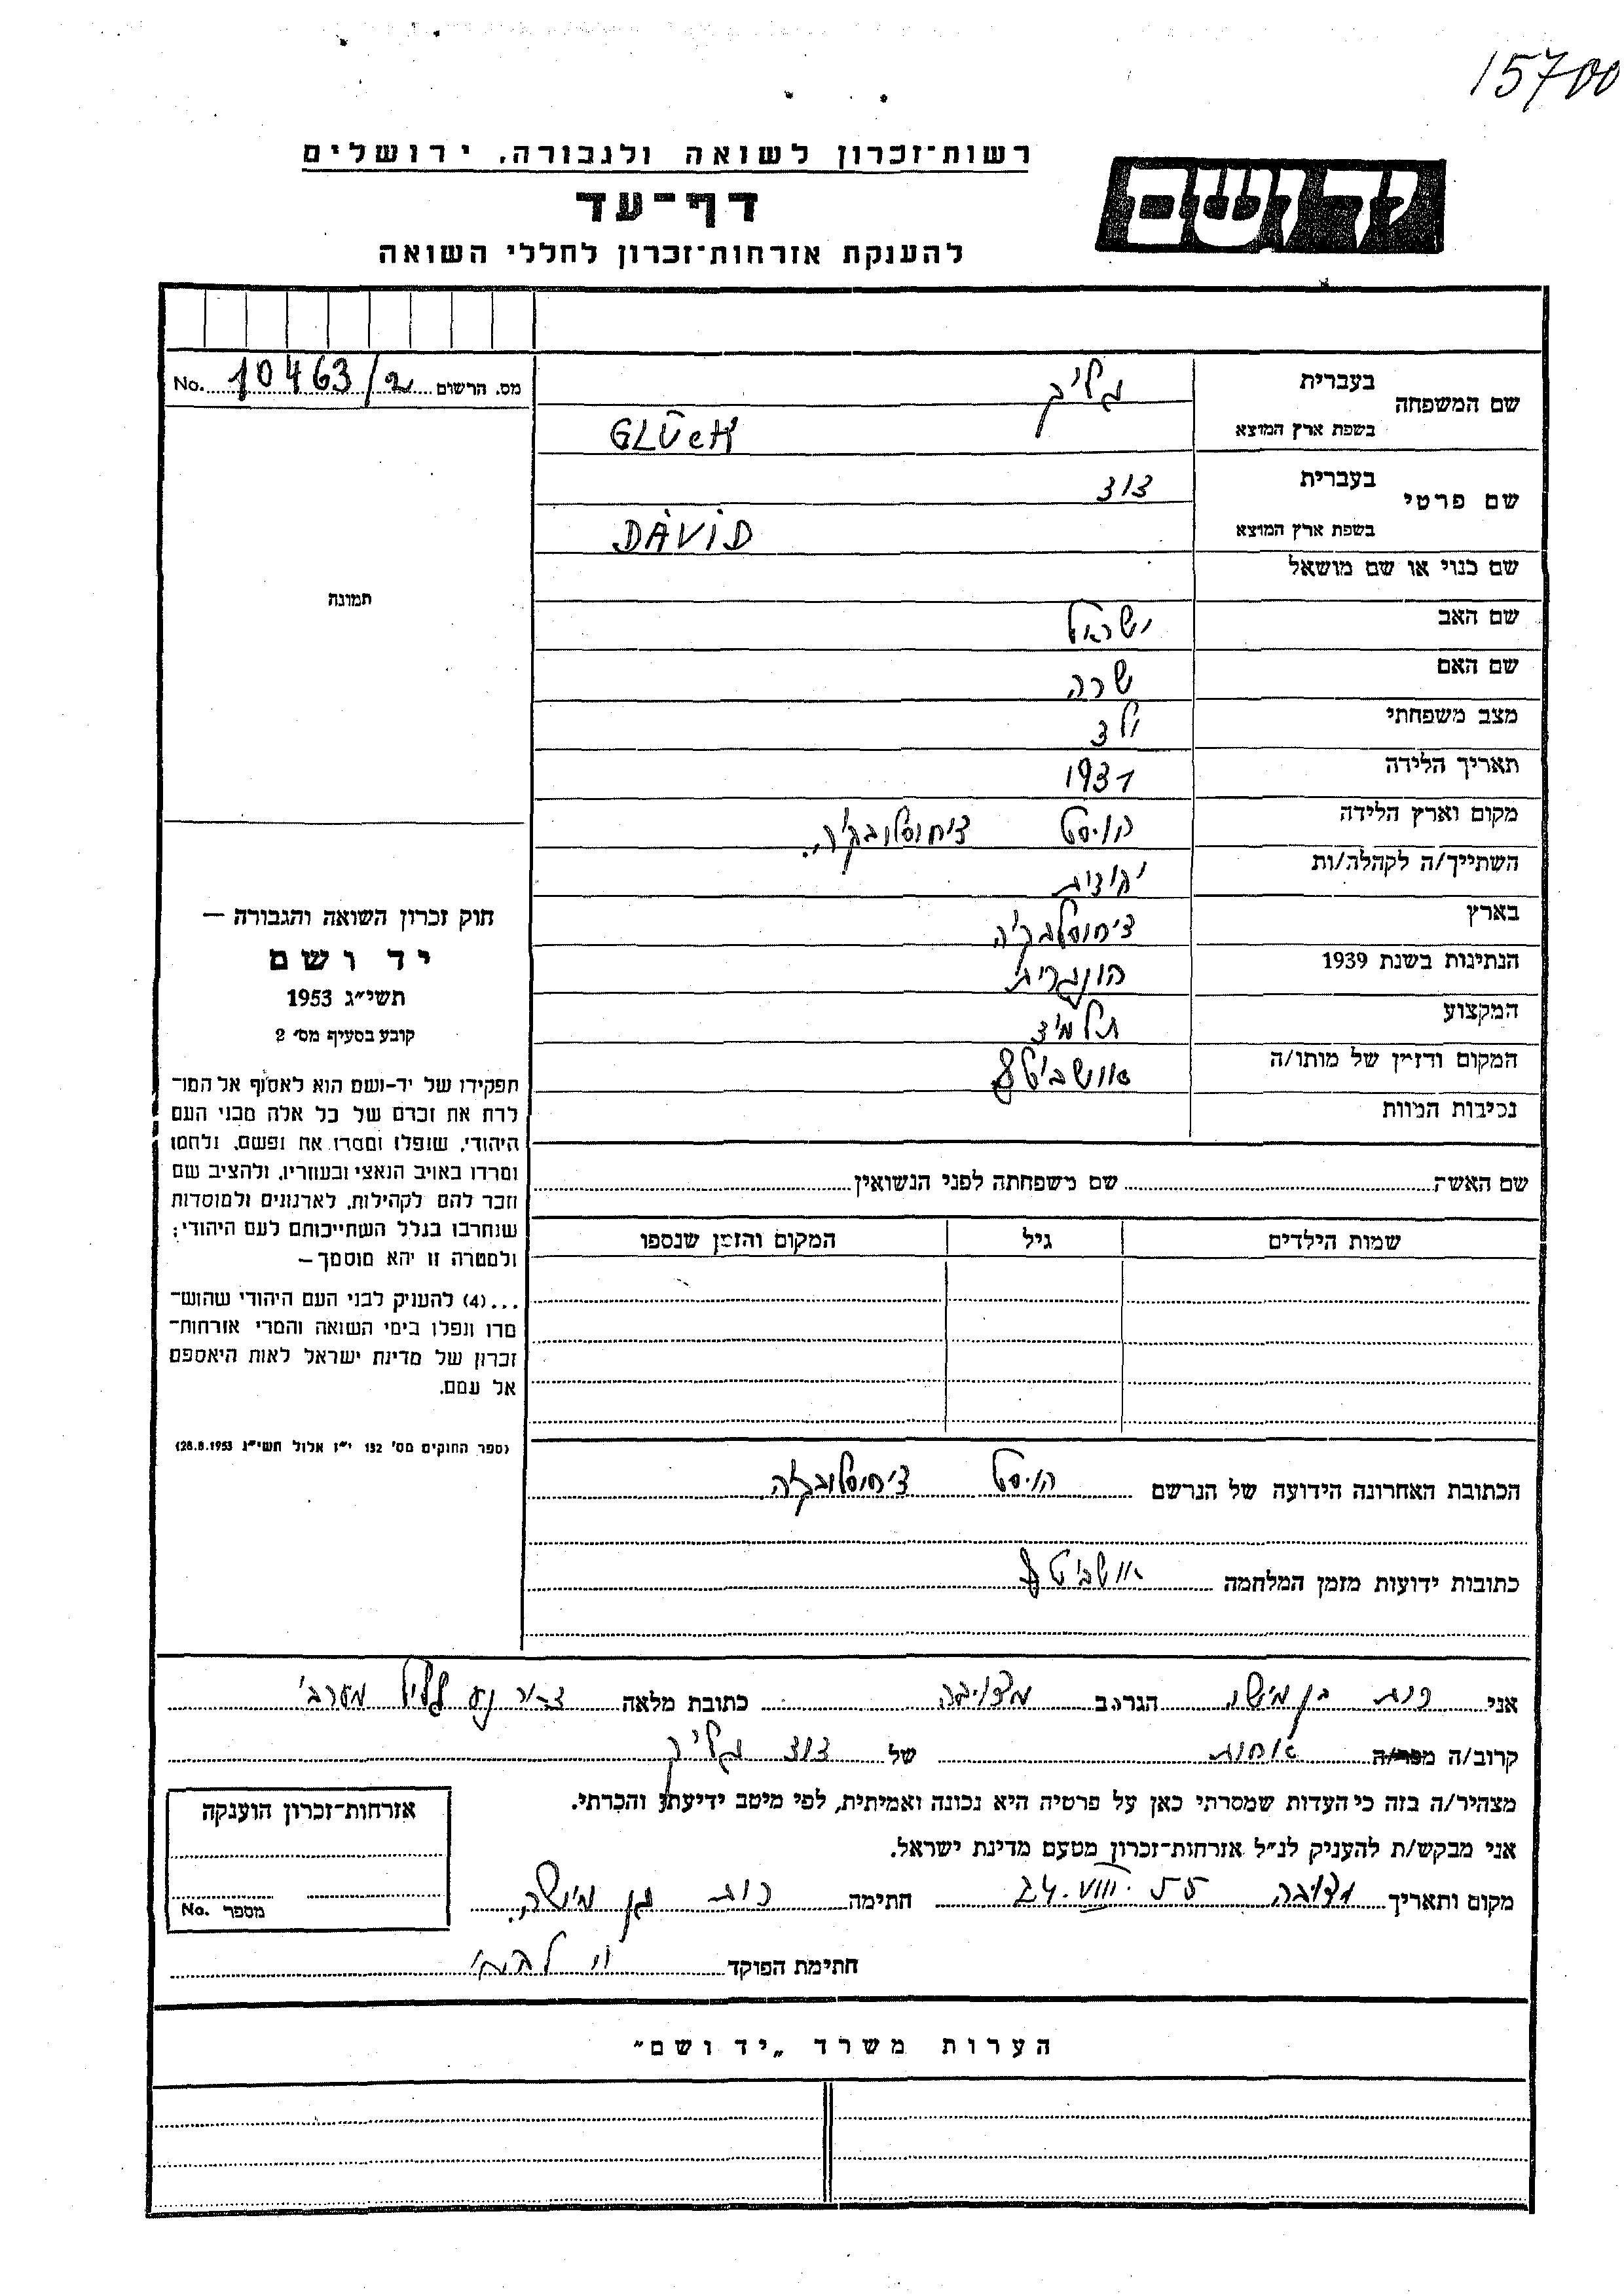 15700
רשות־זכרון לשואה ולגבורה, ירושלים
יד ושם
דף־עד
להענקת אזרחות־זכרון לחללי השואה
מס. הרשום 10463/2 No.
שם המשפחה
בעברית גליק
בשפת ארץ המוצא GLÜcK
שם פרטי
בעברית דוד
בשפת ארץ המוצא DÁVID
שם כנוי או שם מושאל
שם האב ישראל
שם האם שרה
מצב משפחתי ילד
תאריך הלידה 1931
מקום וארץ הלידה הויסט ציחוסלובקיה
השתייך/ה לקהלה/ות יהודית
בארץ ציחוסלובקיה
הנתינות בשנת 1939 הונגרית
המקצוע תלמיד
המקום והזמן של מותו/ה אושביטץ
נסיבות המוות
תמונה
חוק זכרון השואה והגבורה —
יד ושם
תשי״ג 1953
קובע בסעיף מס׳ 2
תפקידו של יד-ושם הוא לאסוף אל המו־
לדת את זכרם של כל אלה מבני העם
היהודי, שנפלו ומסרו את נפשם, נלחמו
ומרדו באויב הנאצי ובעוזריו, ולהציב שם
וזכר להם לקהילות, לארגונים ולמוסדות
שנחרבו בגלל השתייכותם לעם היהודי;
ולמטרה זו יהא מוסמך —
...(4) להעניק לבני העם היהודי שהוש־
מדו ונפלו בימי השואה והמרי אזרחות־
זכרון של מדינת ישראל לאות היאספם
אל עמם.
(ספר החוקים מס׳ 132 י״ז אלול תשי״ג 28.8.1953)
שם האשה שם משפחתה לפני הנשואין
שמות הילדים גיל המקום והזמן שנספו
הכתובת האחרונה הידועה של הנרשם הויסט ציחוסלובקיה
כתובות ידועות מזמן המלחמה אושביטץ
אני רות בן מישה הגר ב מצובה כתובת מלאה ד.צ. נע גליל מערבי
קרוב/ה מכר/ה אחות של דוד גליק
מצהיר/ה בזה כי העדות שמסרתי כאן על פרטיה היא נכונה ואמיתית, לפי מיטב ידיעתי והכרתי.
אני מבקש/ת להעניק לנ״ל אזרחות־זכרון מטעם מדינת ישראל.
מקום ותאריך מצובה 24.VIII.55 חתימה רות בן מישה
חתימת הפוקד
אזרחות־זכרון הוענקה
מספר No.
הערות משרד „יד ושם״